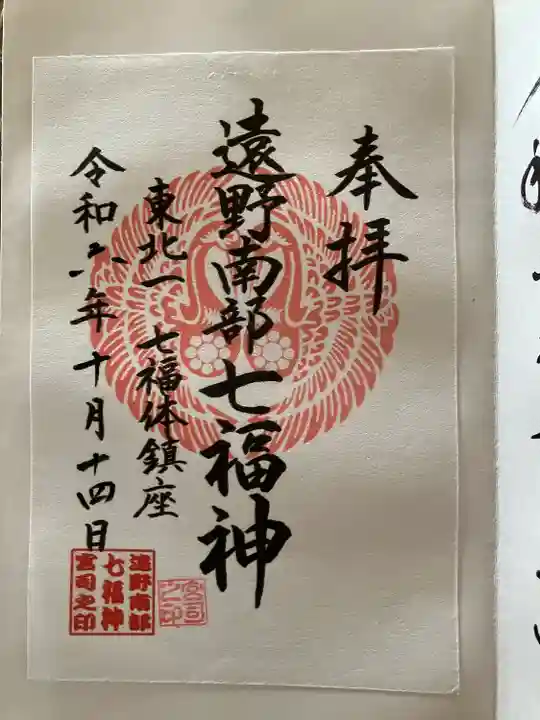 奉拝
遠野南部七福神
東北一 七福体鎮座
令和六年十月十四日
遠野南部
七福神
宮司之印
宮司
之印